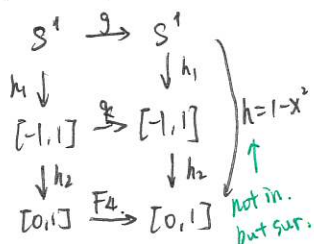 S¹ g S¹
h₁ h₁
[-1,1] [-1,1] h=1-x²
h₂ h₂
[0,1] F4. [0,1]
not in.
but sur.